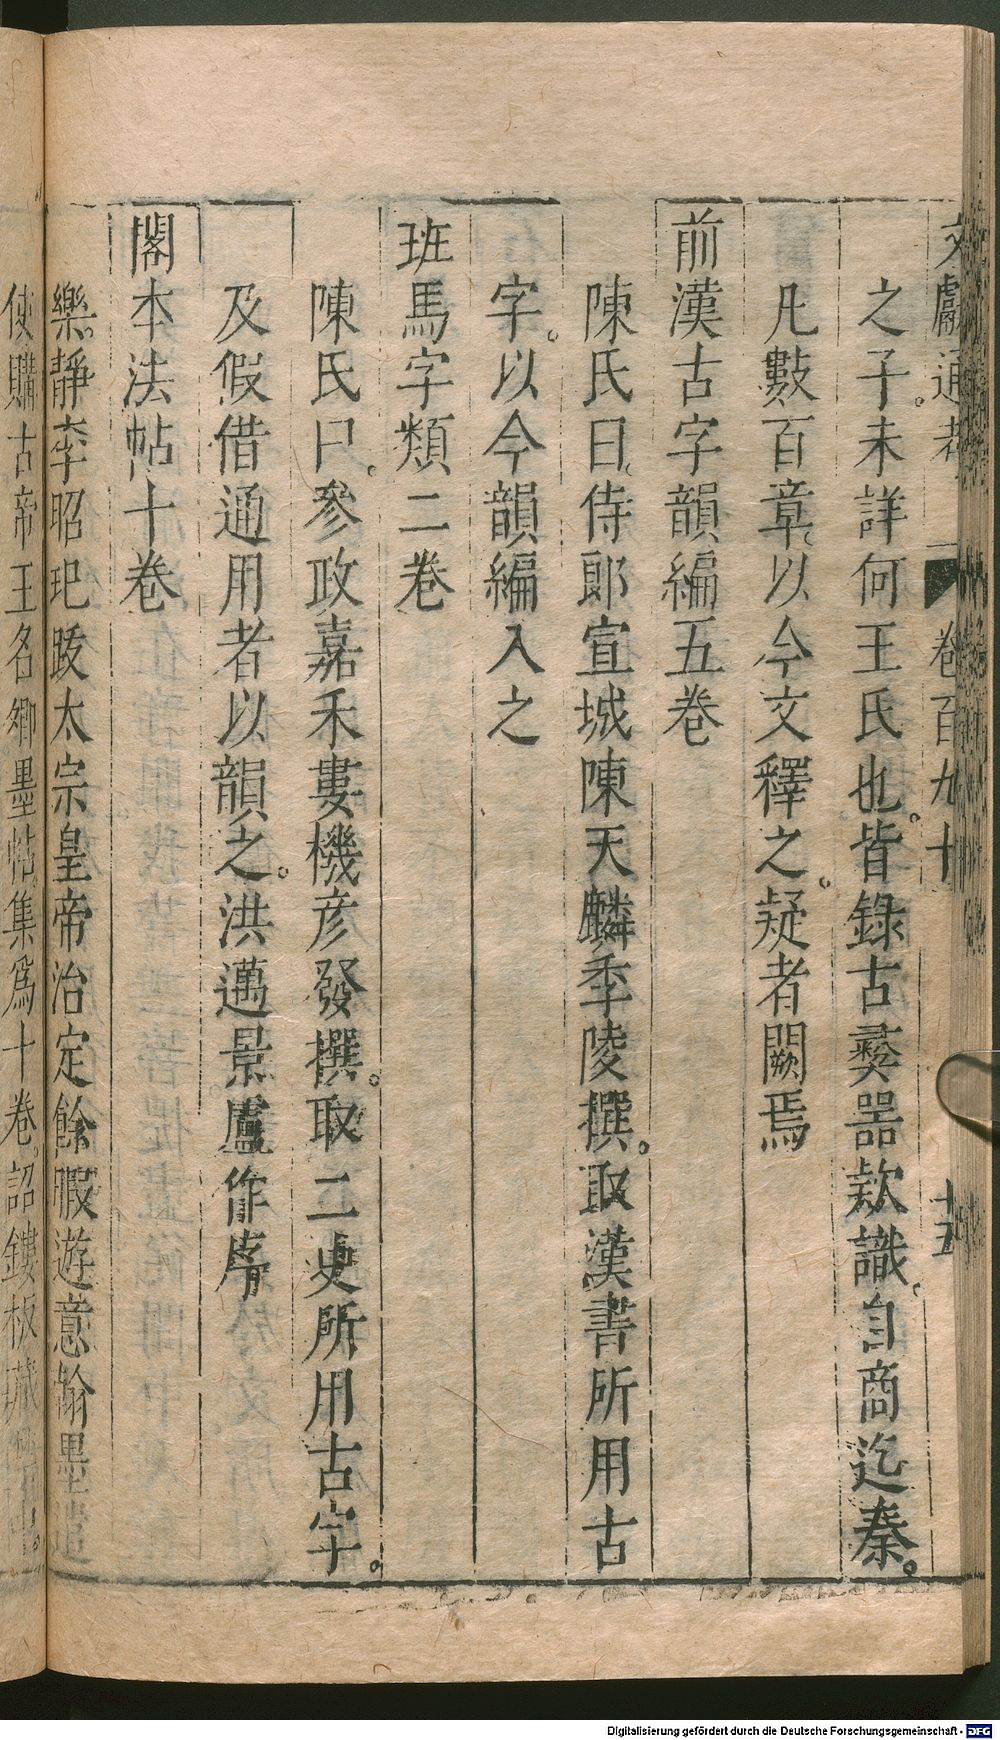 文獻通考 卷百九十 十五
之子。未詳何王氏也。皆錄古彝器款識。自商迄秦。
凡數百章。以今文釋之。疑者闕焉
前漢古字韻編五卷
陳氏曰。侍郞宣城陳天麟季陵撰。取漢書所用古
字。以今韻編入之
班馬字類二卷
陳氏曰。參政嘉禾婁機彦發撰。取二史所用古字。
及假借通用者以韻之。洪邁景盧作序
閣本法帖十卷
樂靜李昭玘䟦太宗皇帝治定餘暇遊意翰墨遣
使購古帝王名卿墨帖集爲十卷。詔鏤板藏
Digitalisierung gefördert durch die Deutsche Forschungsgemeinschaft - DFG